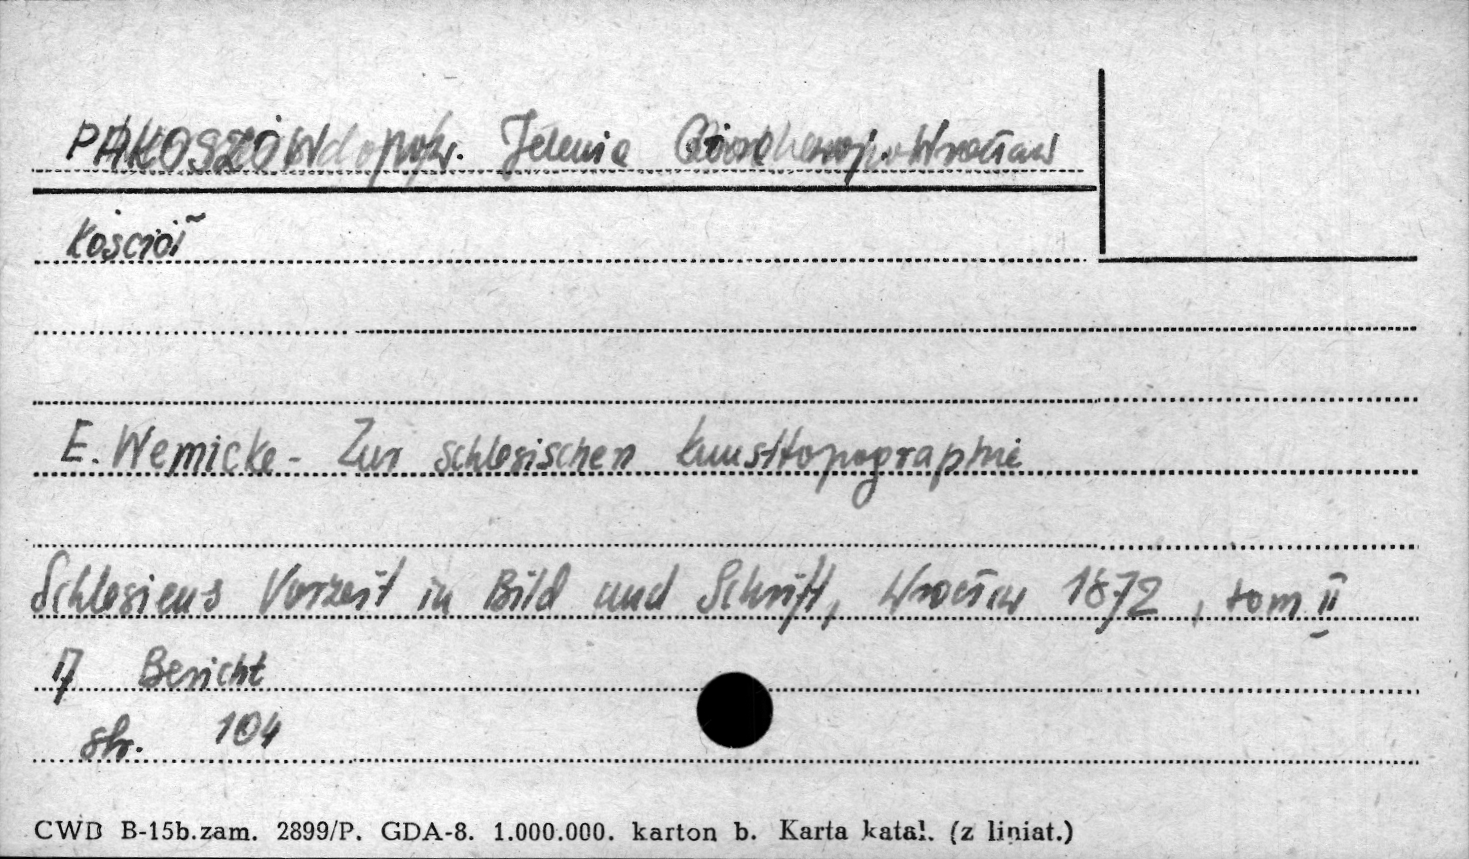 PAKOSZÓW pow. Jelenia Góra woj. Wrocław
Kościół
E. Wernicke - Zur schlesischen Kunsttopographie
Schlesiens Vorzeit in Bild und Schrift, Wrocław 1872, tom II
17 Bericht
str. 104
CWD B-15b.zam. 2899/P. GDA-8. 1.000.000. karton b. Karta katal. (z liniat.)